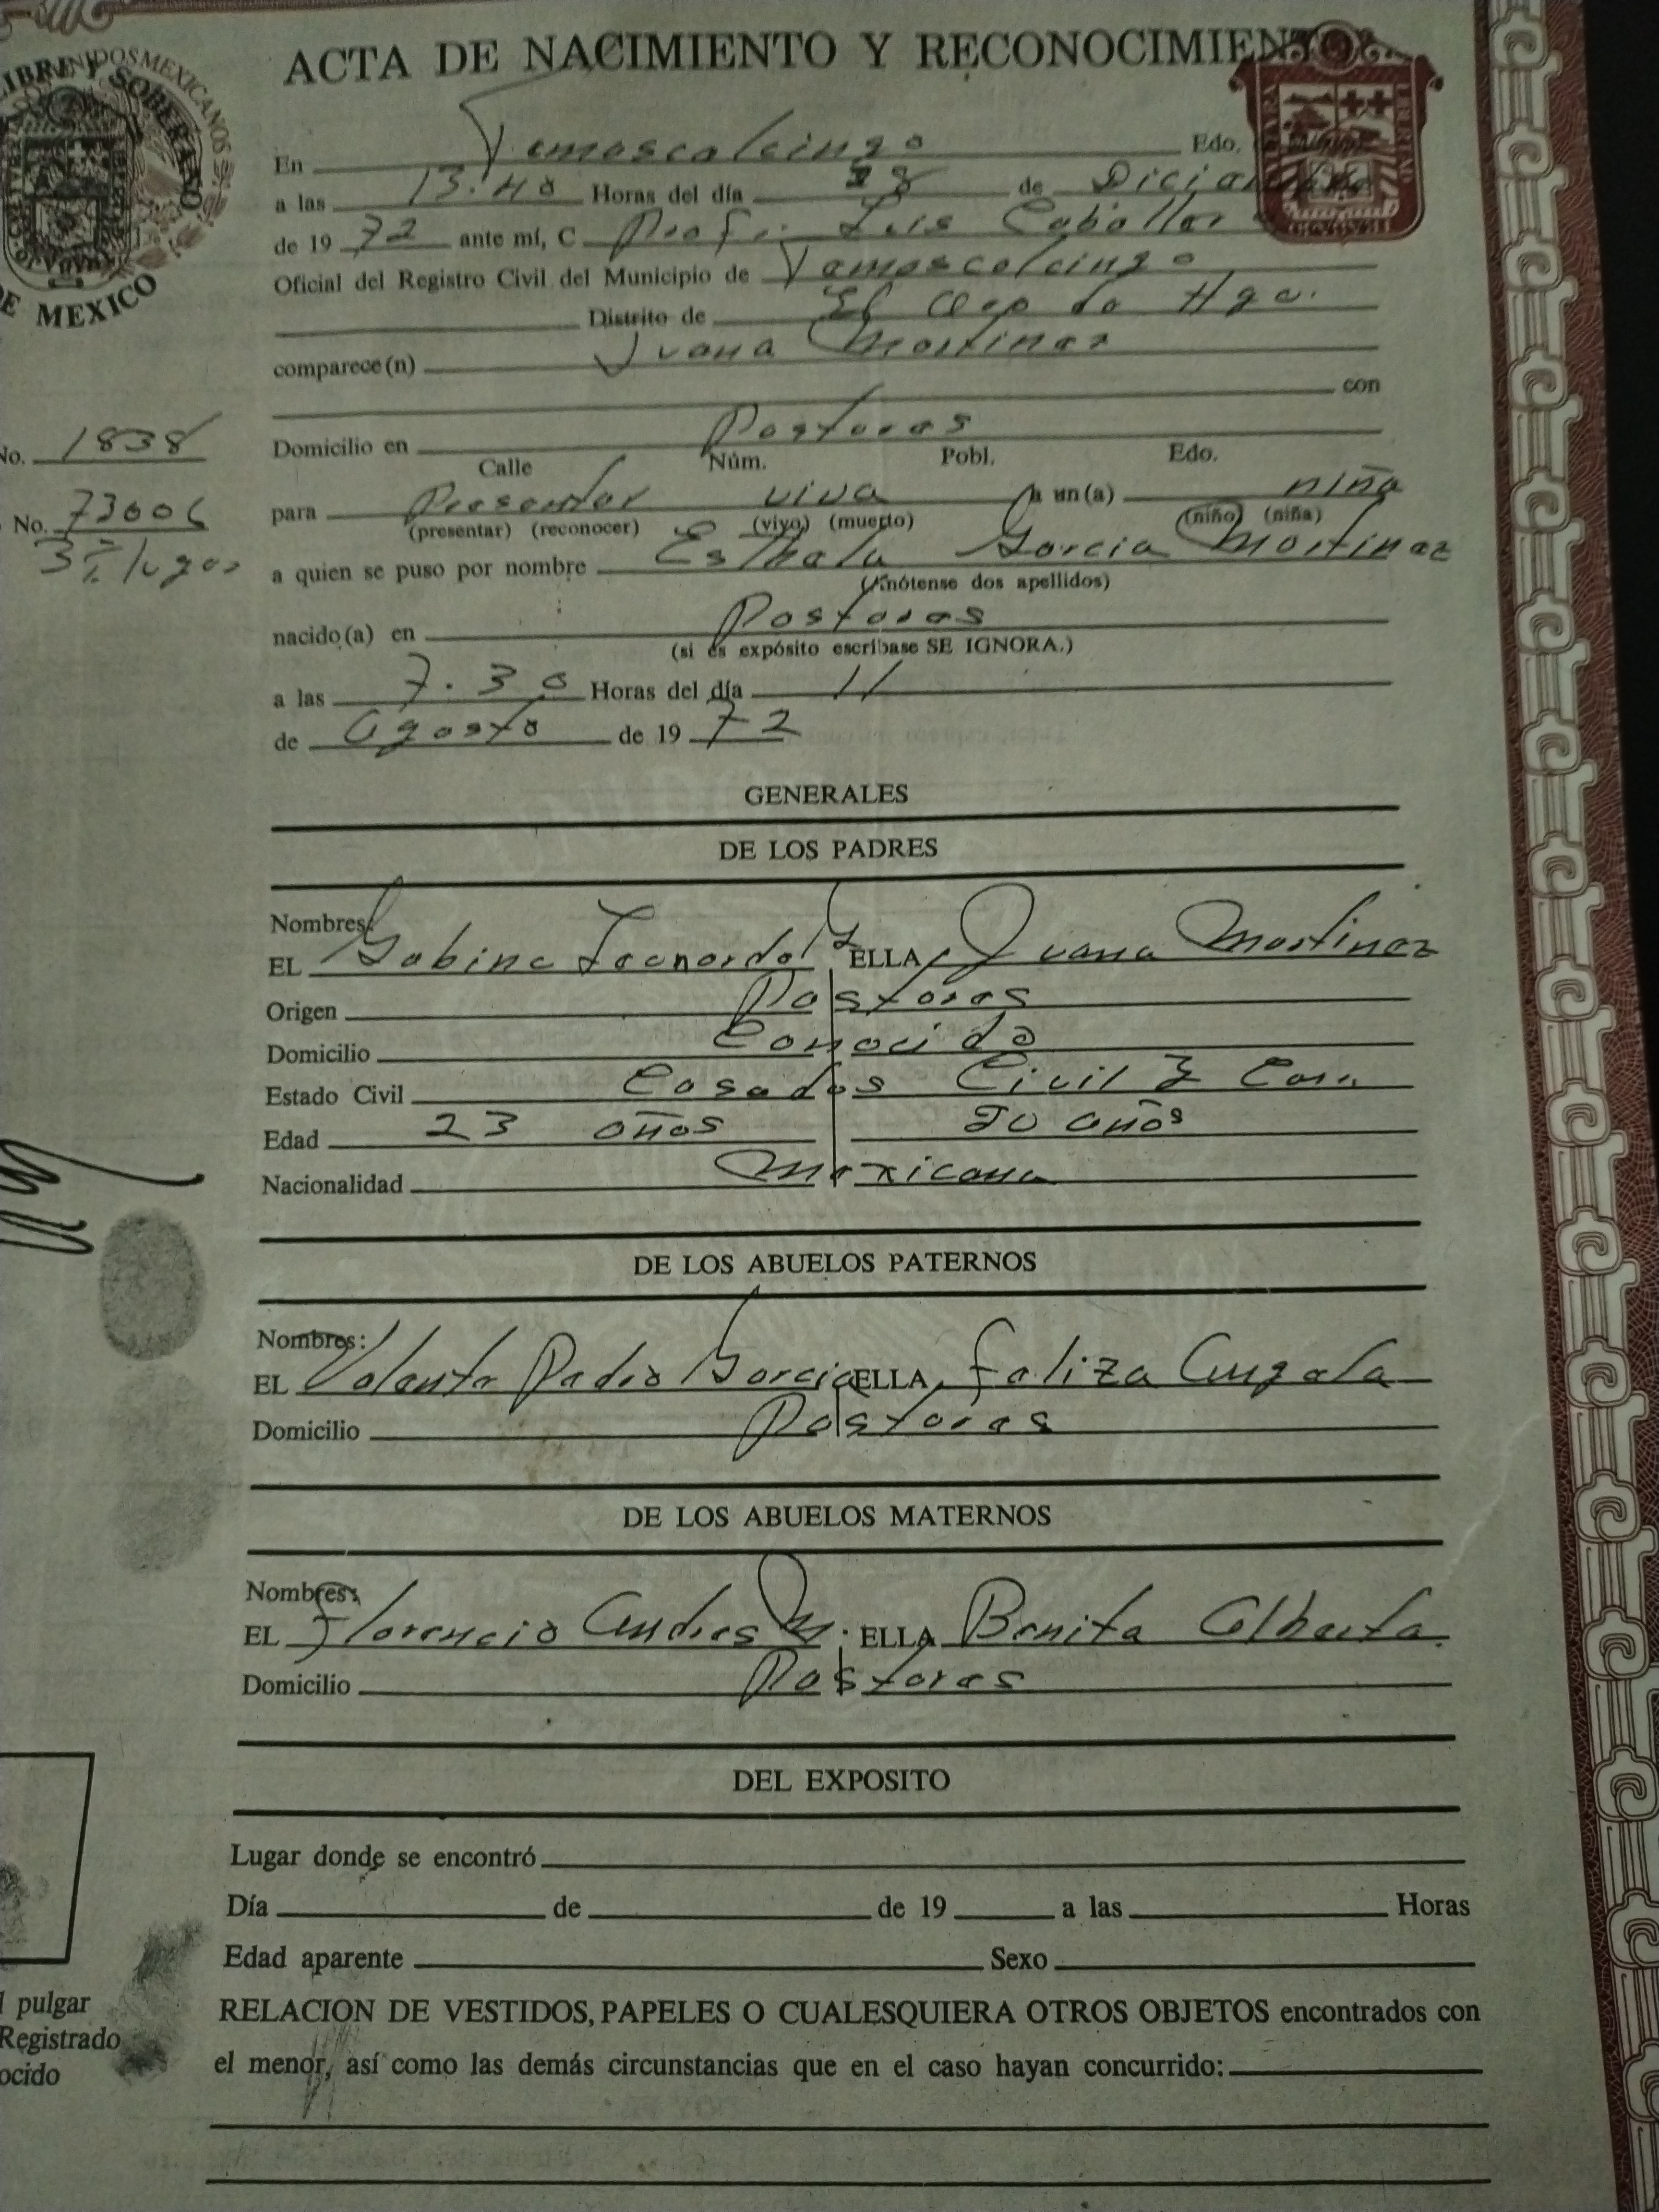 ACTA DE NACIMIENTO Y RECONOCIMIENTO
LIBRE Y SOBERANO
UNIDOS MEXICANOS
DE MEXICO
En Temascalcingo Edo.
a las 13.40 Horas del día 28 de Diciembre
de 1972 ante mí, C Prof. Luis Caballero
Oficial del Registro Civil del Municipio de Temascalcingo
Distrito de El Oro de Hgo.
comparece(n) Juana Martinez
con
No. 1838
Domicilio en Pastores
Calle Núm. Pobl. Edo.
No. 73006
para Presentar viva a un(a) niña
(presentar) (reconocer) (vivo) (muerto) (niño) (niña)
lugar
a quien se puso por nombre Esthela Garcia Martinez
(Anótense dos apellidos)
nacido(a) en Pastores
(si es expósito escríbase SE IGNORA.)
a las 7.30 Horas del día 11
de Agosto de 1972
GENERALES
DE LOS PADRES
Nombres:
EL Gabino Leonardo G ELLA Juana Martinez
Origen Pastores
Domicilio Conocido
Estado Civil Casados Civil y
Edad 23 años 20 años
Nacionalidad Mexicana
DE LOS ABUELOS PATERNOS
Nombres:
EL Valente Pedro Garcia ELLA Feliza Angela
Domicilio Pastores
DE LOS ABUELOS MATERNOS
Nombres:
EL Florencio Andres M. ELLA Benita Alberta
Domicilio Pastores
DEL EXPOSITO
Lugar donde se encontró
Día de de 19 a las Horas
Edad aparente Sexo
RELACION DE VESTIDOS, PAPELES O CUALESQUIERA OTROS OBJETOS encontrados con
el menor, así como las demás circunstancias que en el caso hayan concurrido:
pulgar
Registrado
ocido